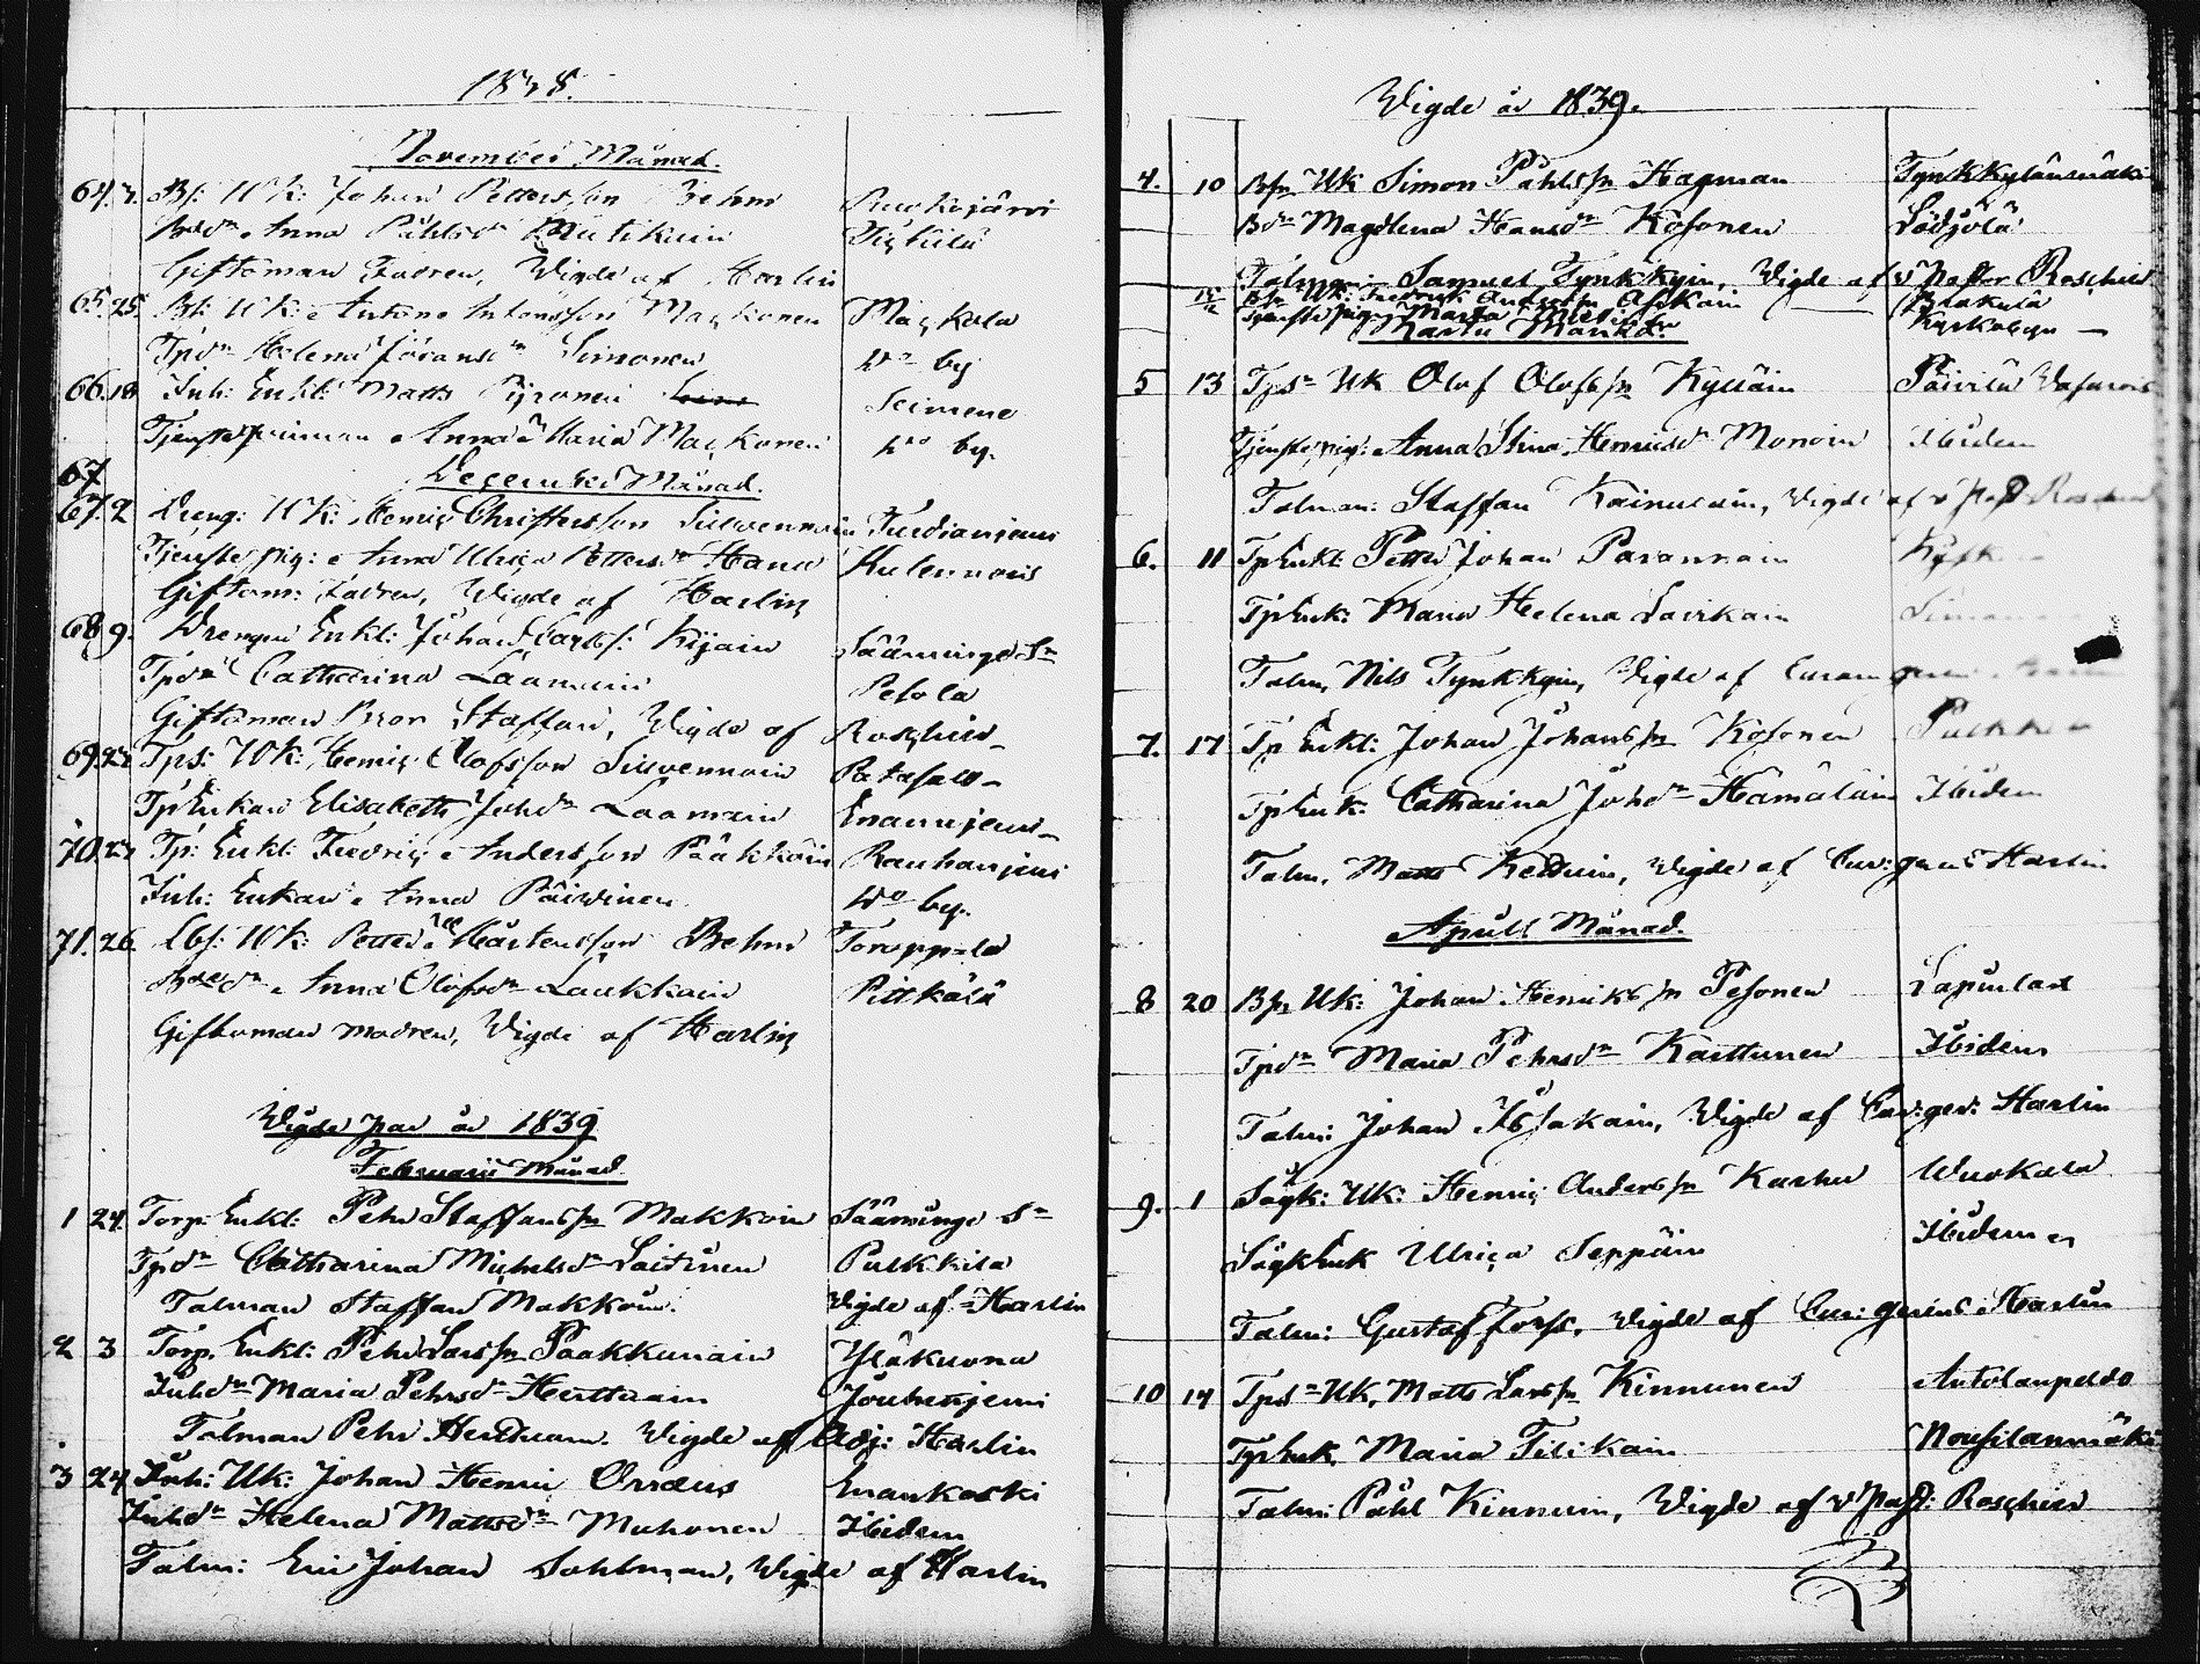 1838.
November Månad.
64. 3. Bs: UK: Johan Pettersson Behm Ruokojärvi
Bdr Anna Påhlsdr Mutikain
Giftoman Fadren, Wigde af Harlin
65. 25. Bs: UK: Anton Antonsson Maçkonen Maçkola
Tpdr Helena Göransdr Simonen do by
66. 18 Inh: Enkl: Matts Pyrönen
Tjenstepiman Anna Maria Maçkonen do by.
67
December Månad.
67. 2 Dreng: UK: Henriç Christersson Siuvennoin
Tjenste pig: Anna Ulriça Pettersdr Kulennois
Giftom: Fadren, Wigde af Harlin
68 9. Drengen Enkl: Johan Kijain Sääminge Sn
Tpdr Catharina Laamain Pesola
Giftoman Bror Staffan, Wigde af Rosçhier
69. UK: Henriç Olofsson Siuvennoin Patasalo
Tp Enkan Elisabeth Johdr Laamain Enanniemi
70. Tp: Enkl: Fredriç Andersson Pääkköin Rauhaniemi
Inh: Enkan Anna Päivinen do by.
71. 26. Lbs: UK: Petter Mårtensson Behm Toroppala
Anna Olofsdr Laukkain Pitkälä
Giftoman modren, Wigde af Harlin
Wigde par år 1839
Februarii Månad.
1 24. Torp: Enkl: Pehr Staffanssn Makkoin Sääminge Sn
Tpdr Catharina Michelsdr Laitinen Pulkkila
Talman Staffan Makkoin. Wigde af Harlin
2 3 Torp. Enkl: Pehr Larssn Paakkunain Yläkuona
Inhdr Maria Pehrsdr Herttuain Jouhenjemi
Talman Pehr Herttuain. Wigde af Adj: Harlin
3 24 Inh: UK: Johan Henric Orræus Enankoski
Inhdr Helena Mattsdr Muhonen Ibidem
Talm: Eric Johan Sohlman, Wigde af Harlin
Wigde år 1839.
4. 10 Bsn UK Simon Påhlssn Hagman Tynkkylänmäki
Bdr Magdlena Hansdr Kosonen
Talman Samuel Tynkkyin, Wigde af v Pastor Rosçhier
Bsn UK: Fredrik Anderssn Asikain
Tjenste pig: Marta Kyrkobyn
Martii Månad.
5 13 Tpsn UK Olof Olofssn Kylläin
Tjenste pig: Anna Stina Henricsdr Monoin Ibidem
Talman: Staffan Kainulain, Wigde af v Past: Rosçhier
6. 11 TpEnkl: Petter Johan Parannain
TpEnk: Maria Helena Lavikain
Talm. Nils Tynkkyin, Wigde af
7. 17 Tp Enkl: Johan Johanssn Kosonen
TpEnk: Catharina Johdr Hämäläin Ibidem
Talm. Matts Kettuin, Wigde af Cur: gerens Harlin
Aprill Månad.
8 20 Bsn UK: Johan Henrikssn Pesonen Lapinlax
Tpdr Maria Pehrsdr Karttunen Ibidem
Talm: Johan Issakain, Wigde af Cur: ger: Harlin
9. 1 Sågk: UK: Henriç Anderssn Karhu Wuokala
SågkEnk Ulriça Seppäin Ibidem
Talm: Gustaf Forss, Wigde af Cur: gerens Harlin
10 14 Tpsn UK, Matts Larssn Kinnunen Antolanpeldo
TpEnk. Maria Tilikain Nousilanmäki
Talm: Påhl Kinnuin, Wigde af v Past: Rosçhier